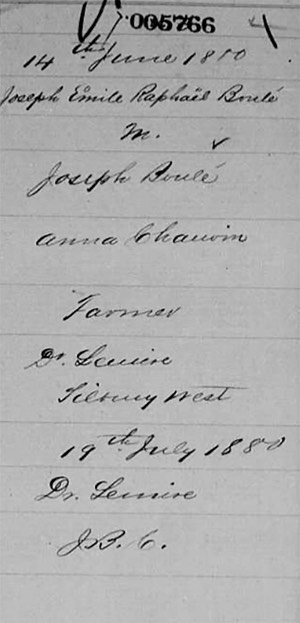 005766
14th June 1880
Joseph Emile Raphaël Boulé
M.
Joseph Boulé
Anna Chauvin
Farmer
Dr. Lemire
Tilbury West
19th July 1880
Dr. Lemire
J.B.C.